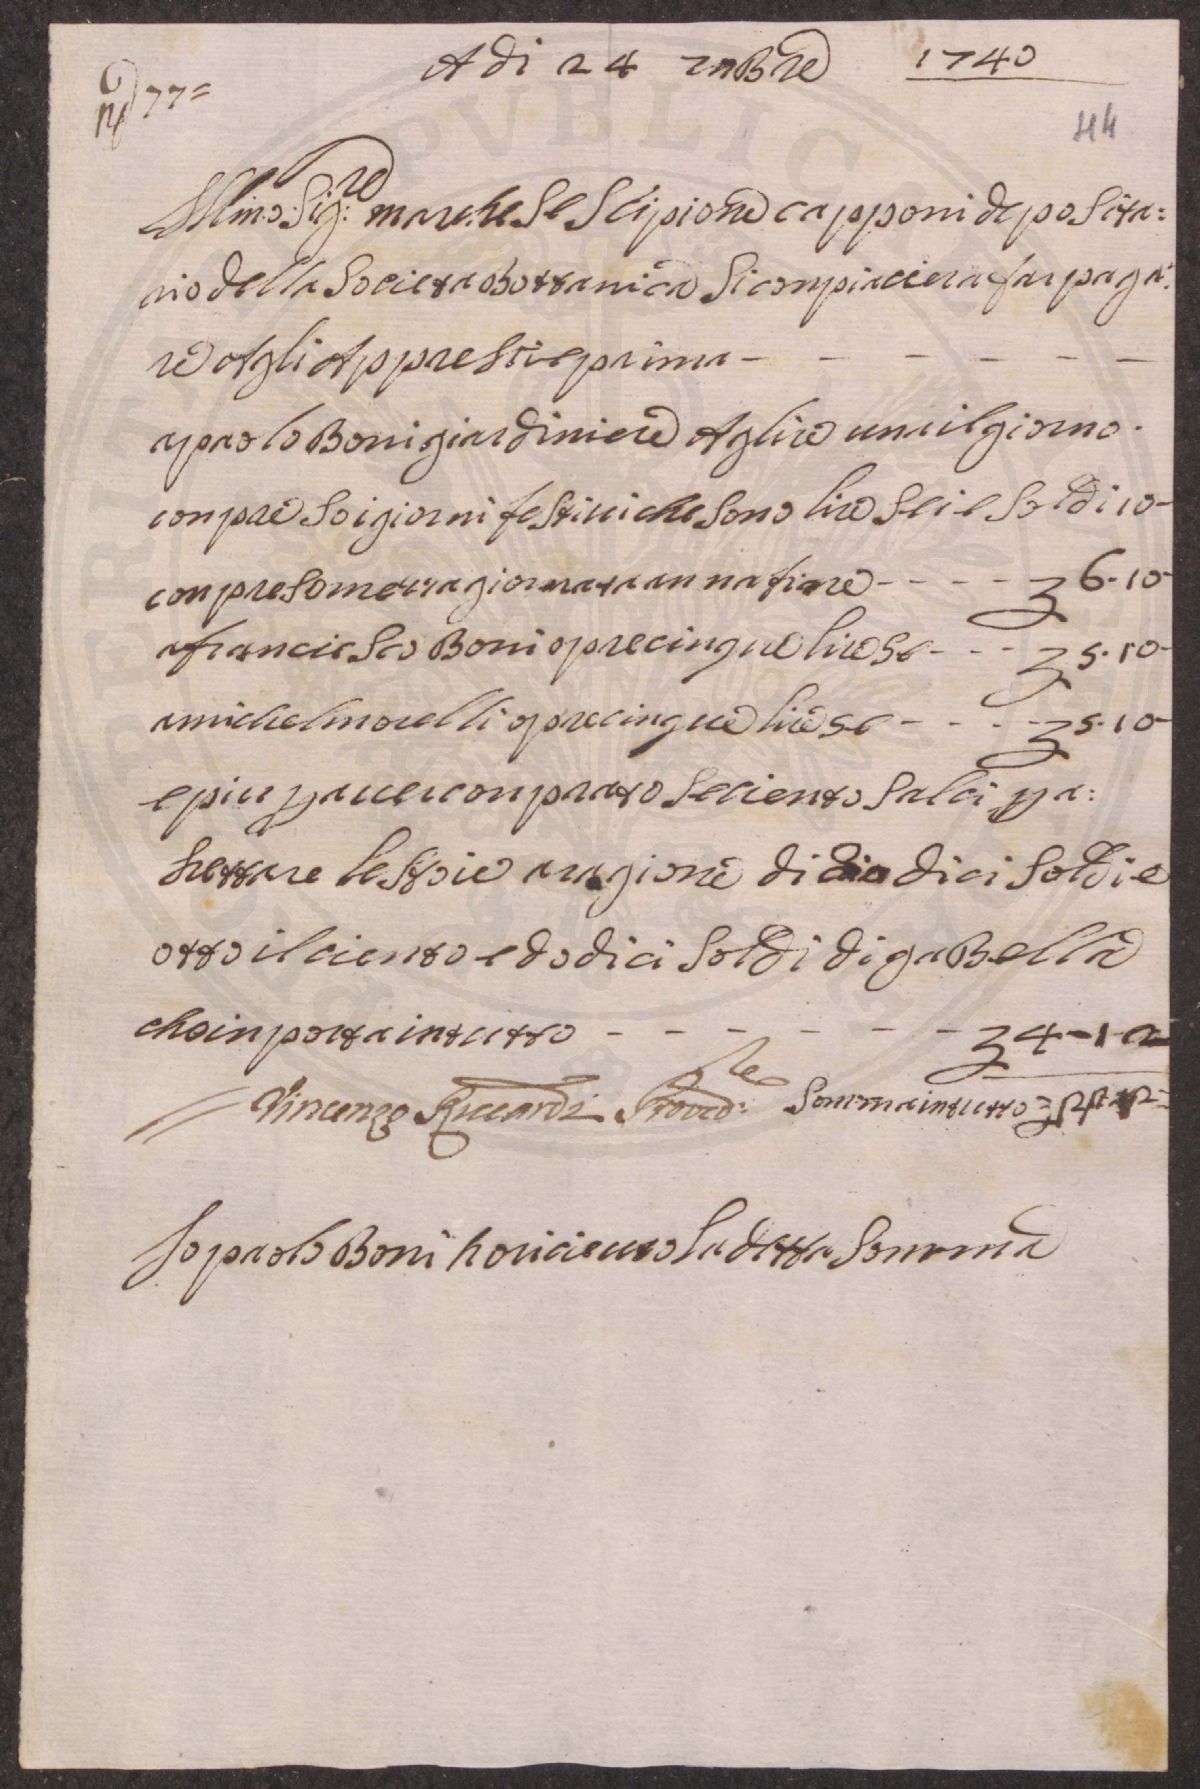 A di 24 9nBre 1740
N 77=
44
Illmo: Sig:re marchese Scipione capponi deposita:
rio della Societa Bottanica Si conpiaciera far paga:
re Agli Appresti e prima
a paolo Boni giardiniere A lire una il giorno.
conpreso i giorni festivi che sono lire sei e soldi 10
conpreso mezza giornata annafiare 6.10
a francicsco Boni opre cinque lire se 5.10
a michel morelli opre cinque lire se 5.10
e piu p aver conprato seciento salci p a:
settare le stoie a ragione di dicidici soldi e
otto il ciento e dodici soldi di gaBella
che inporta in tutto 4-1-2
Vincenzo Riccardi Provved:re Somma in tutto
Io paolo Boni ho riciuuto la detta Somma